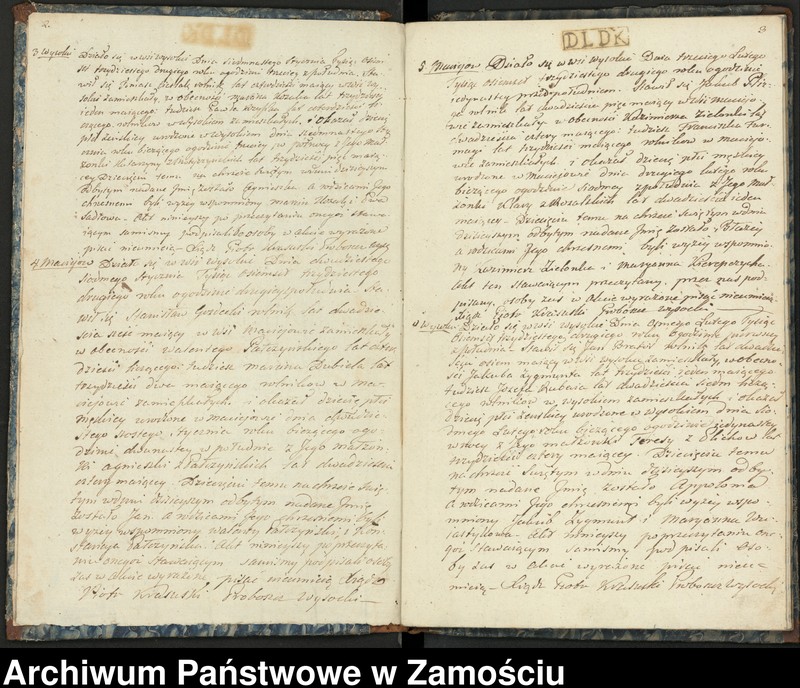 2.
DLDK
3 Wysokie Działo się w wsi wysokiu Dnia siedemnastego Stycznia Tysiąc Ośm
set trzydziestego drugiego roku ogodzinie trzeciey z południa. Sta
wił się rolnik lat czterdzieści maiący w wsi wy
sokiu zamieszkały w obecności lat trzydzieści
ieden maiącego tudzież lat czterdzieści
rolników w wysokiem zamieszkałych, i okazał Dziecię
płci urodzone w wysokiem dnia siedemnastego
roku bieżącego ogodzinie z Jego Mał
żonki lat trzydzieści maią
cey Dziecięciu temu na chrzcie świętym w dniu dzisieyszym
odbytym nadane Jmię zostało Agnieszka a rodzicami Jego
chrzesnemi byli wyżey wspomniony Marcin i
Akt ninieyszy po przeczytaniu onegoż stawa
iącym samismy podpisali osoby w Akcie wyrażone
pisać nieumieią Xiądz Piotr Krasuski Proboszcz wysoki
4 Maciejów Działo się w wsi wysokiu Dnia dwudziestego
siodmego Stycznia Tysiąc ośmset trzydziestego
drugiego roku ogodzinie drugiey z południa Sta
wił się Stanisław Gorecki rolnik lat dwadzie
ścia sześć maiący w wsi Maciejowie zamieszkały
w obecności Walentego Patczyńskiego lat czter
dzieści maiącego tudzież Marcina Dubiela lat
trzydzieści dwa maiącego rolników w Ma
ciejowie zamieszkałych i okazał dziecię płci
męzkiey urodzone w Maciejowie dnia dwudzie
stego szostego stycznia roku bieżącego ogo
dzinie dwunastey w południe z Jego małżon
ki Agnieszki z Patczyńskich lat dwadzieścia
cztery maiącey. Dziecięciu temu na chrzcie świę
tym w dniu dzisieyszym odbytym nadane Jmię
zostało Jan a rodzicami Jego chrzesnemi byli
wyżey wspomniony Walenty Patczyński i Kon
stancya Patczyńska. Akt ninieyszy po przeczyta
niu onegoż stawaiącym samismy podpisali osoby
zaś w Akcie wyrażone pisać nieumieią Xiądz
Piotr Krasuski Proboszcz Wysocki
3
DLDK
5 Maciejów Działo się w wsi wysokiu Dnia trzeciego Lutego
Tysiąc ośmset trzydziestego drugiego roku ogodzinie
iedynastey przed południem. Stawił się Jakub
rolnik lat dwadzieścia pięć maiący w wsi Maciejo
wie zamieszkały w obecności Kazimierza Zielonki lat
dwadzieścia cztery maiącego tudzież Franciszka
lat trzydzieści maiącego rolników w Macieio
wie zamieszkałych i okazał dziecię płci męzkiey
urodzone w Maciejowie dnia drugiego Lutego roku
bieżącego ogodzinie siodmey z południa z Jego mał
żonki Klary z lat dwadzieścia ieden
maiącey. Dziecięciu temu na chrzcie świętym w dniu
dzisieyszym odbytym nadane Jmię zostało Błażey
a rodzicami Jego chrzesnemi byli wyżey wspomnio
ny Kazimierz Zielonka i Maryanna
Akt ten stawaiącym przeczytany, przez nas pod
pisany, osoby zaś w Akcie wyrażone pisać nieumieią
Xiądz Piotr Krasuski Proboszcz wysocki
6 Wysokie Działo się w wsi wysokiu Dnia osmego Lutego Tysiąc
Ośmset trzydziestego drugiego roku ogodzinie pierwszey
z południa Stawił się Jan Bratos rolnik lat dwadzie
ścia ośm maiący w wsi wysokiu zamieszkały w obecno
ści Jakuba Zygmunta lat trzydzieści ieden maiącego
tudzież Józefa Kubaia lat dwadzieścia siedm maią
cego rolników w wysokiem zamieszkałych i okazał
dziecię płci żeńskiey urodzone w wysokiem dnia sio
dmego Lutego roku bieżącego ogodzinie iedynastey
w nocy z Jego małżonki Teresy z lat
trzydzieści cztery maiącey. Dziecięciu temu
na chrzcie świętym w dniu dzisieyszym odby
tym nadane Jmię zostało Appolonia
a rodzicami Jego chrzesnemi byli wyżey wspo
mniony Jakub Zygmunt i Maryanna
Akt ninieyszy po przeczytaniu one
goż stawaiącym samismy podpisali oso
by zaś w Akcie wyrażone pisać nieu
mieią Xiądz Piotr Krasuski Proboszcz Wysocki
Archiwum Państwowe w Zamościu